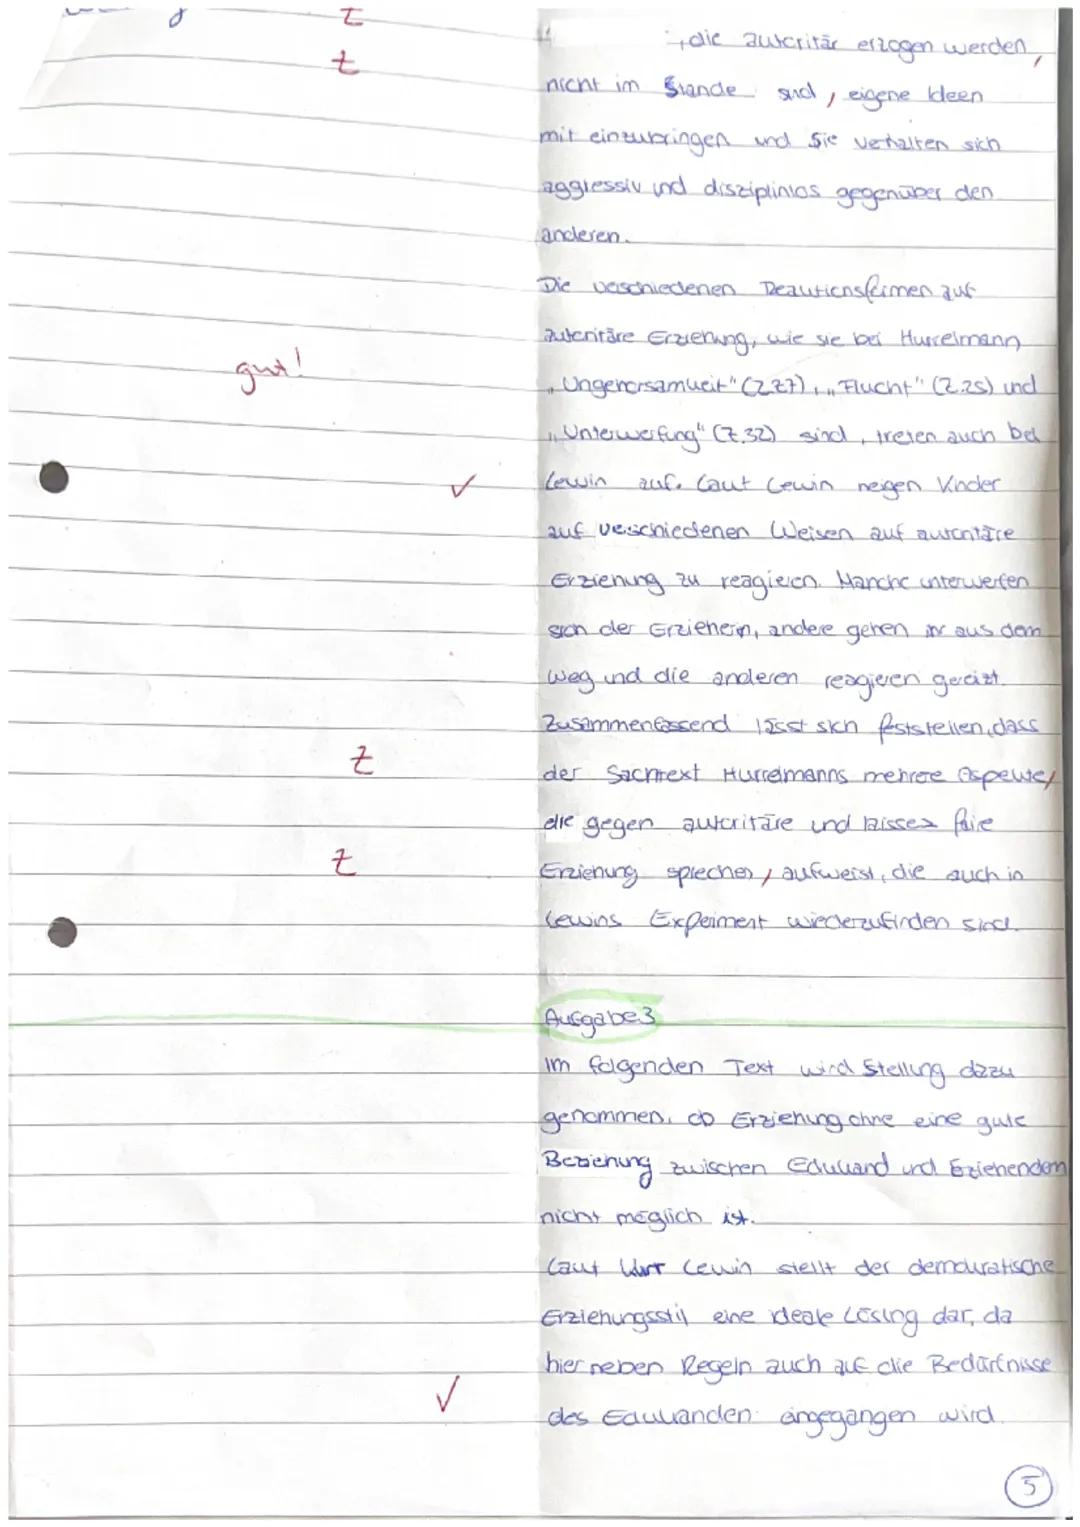 z
z
, die autoritär erzogen werden,
nicht im Stande sind, eigene Ideen
mit einzubringen und sie verhalten sich
aggressiv und disziplinlos gegenüber den
anderen.
Die verschiedenen Reaktionsformen auf
autoritäre Erziehung, wie sie bei Hurrelmann
gut!
„Ungehorsamkeit" (Z.27), „Flucht" (Z.25) und
„Unterwerfung" (Z.32) sind, treten auch bei
✓ Lewin auf. Laut Lewin neigen Kinder
auf verschiedenen Weisen auf autoritäre
Erziehung zu reagieren. Manche unterwerfen
sich der Erzieherin, andere gehen ihr aus dem
Weg und die anderen reagieren gereizt.
Zusammenfassend lässt sich feststellen, dass
z der Sachtext Hurrelmanns mehrere Aspekte,
die gegen autoritäre und laissez faire
z Erziehung sprechen, aufweist, die auch in
Lewins Experiment wiederzufinden sind.
Aufgabe 3
Im folgenden Text wird Stellung dazu
genommen, ob Erziehung ohne eine gute
Beziehung zwischen Edukand und Erziehenden
nicht möglich ist.
Laut Kurt Lewin stellt der demokratische
Erziehungsstil eine ideale Lösung dar, da
hier neben Regeln auch auf die Bedürfnisse
✓ des Edukanden eingegangen wird.
5